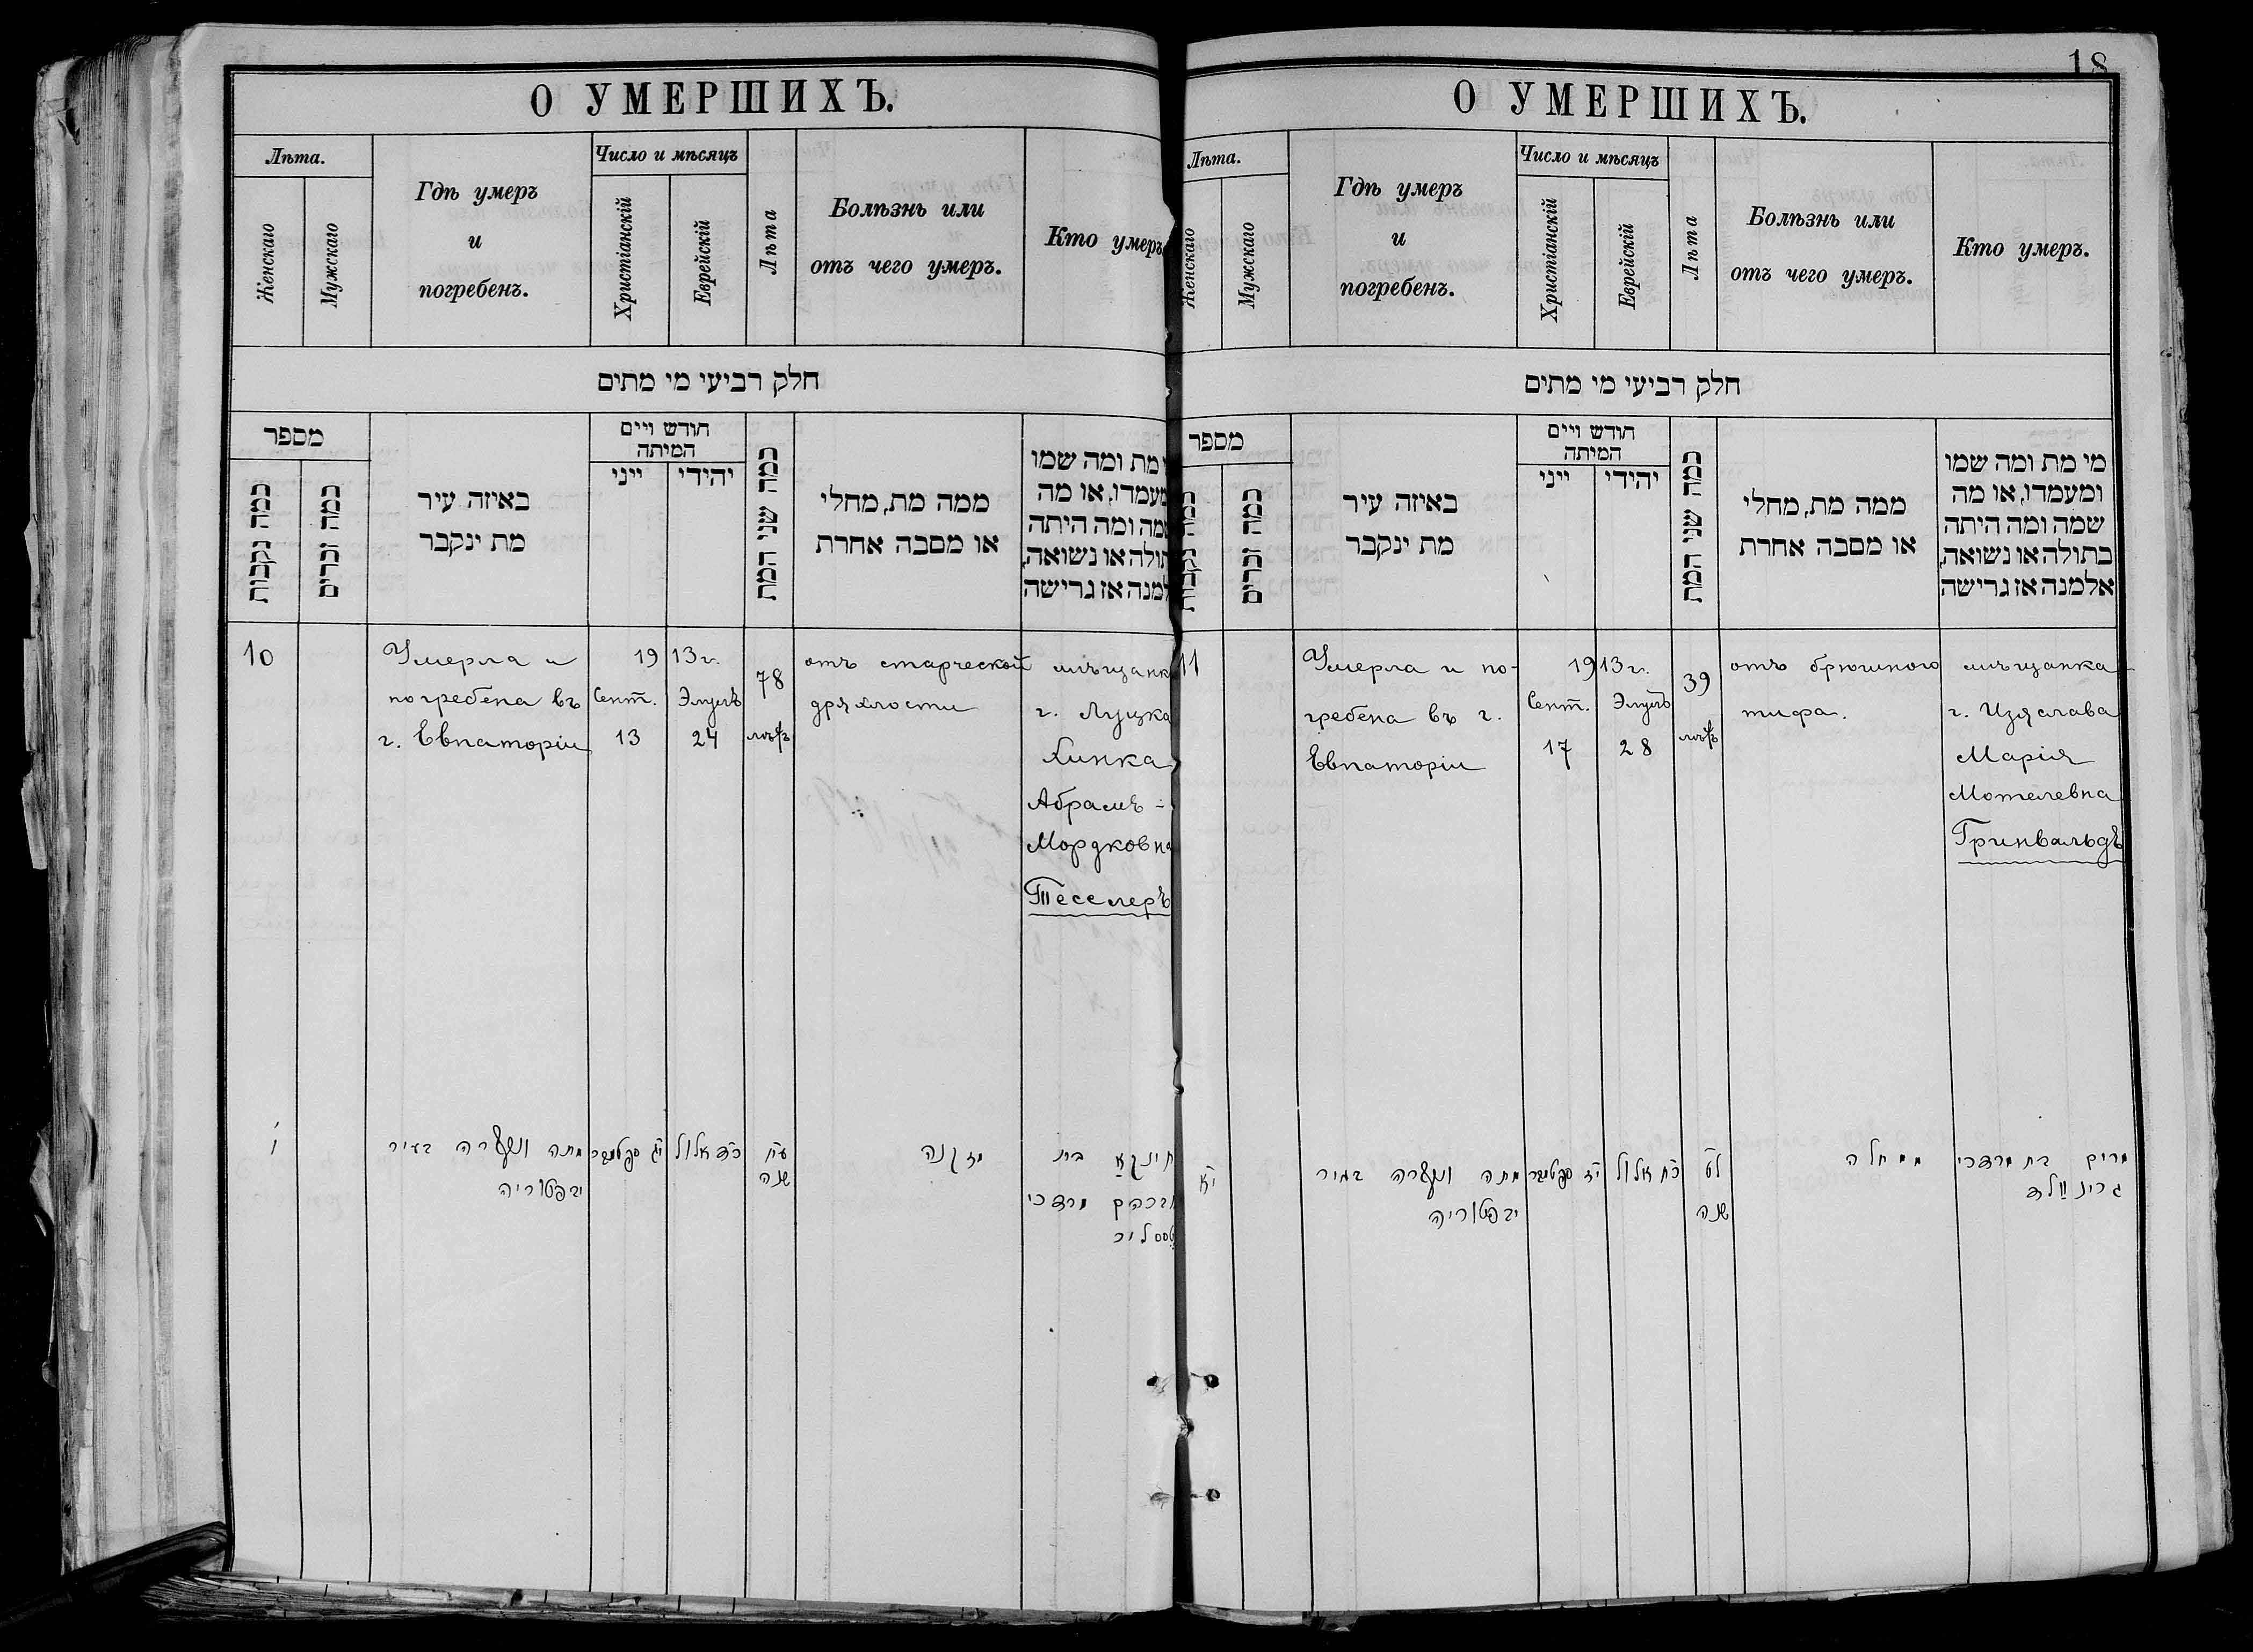 О УМЕРШИХЪ.
Лѣта.
Женскаго
Мужскаго
Гдѣ умеръ
и
погребенъ.
Число и мѣсяцъ
Христіанскій
Еврейскій
Лѣта
Болѣзнь или
отъ чего умеръ.
Кто умеръ
חלק רביעי מי מתים
מספר
כמה נקבות
כמה זכרים
באיזה עיר
מת ינקבר
חודש ויים
המיתה
ייני
יהידי
כמה שני המת
ממה מת, מחלי
או מסבה אחרת
מת ומה שמו
מעמדו, או מה
שמה ומה היתה
תולה או נשואה,
למנה אז גרישה
10
Умерла и
погребена въ
г. Евпаторіи
1913 г.
Сент.
13
Элулъ
24
78
лѣтъ
отъ старческой
дряхлости
мѣщанк
г. Луцка
Хинка
Абрамъ-
Мордковна
Тесслеръ
י
מתה ונקברה בעיר
יבפטוריה
יג סקטמבר
כד אלול
עח
שנה
מזקנה
חינקא בת
אברהם מרדכי
טססליר
18
О УМЕРШИХЪ.
Лѣта.
Женскаго
Мужскаго
Гдѣ умеръ
и
погребенъ.
Число и мѣсяцъ
Христіанскій
Еврейскій
Лѣта
Болѣзнь или
отъ чего умеръ.
Кто умеръ.
חלק רביעי מי מתים
מספר
כמה נקבות
כמה זכרים
באיזה עיר
מת ינקבר
חודש ויים
המיתה
ייני
יהידי
כמה שני המת
ממה מת, מחלי
או מסבה אחרת
מי מת ומה שמו
ומעמדו, או מה
שמה ומה היתה
בתולה או נשואה,
אלמנה אז גרישה
11
Умерла и по-
гребена въ г.
Евпаторіи
1913 г.
Сент.
17
Элулъ
28
39
лѣтъ
отъ брюшного
тифа.
мѣщанка
г. Изяслава
Марія
Мотелевна
Гринвальдъ
יא
מתה ונקברה בעיר
יבפטוריה
יז סקטמבר
כח אלול
לט
שנה
ממחלה
מרים בת מרדכי
גרינוולד